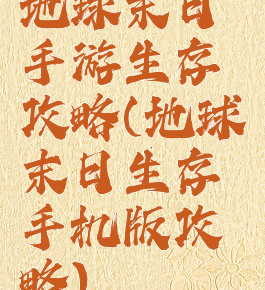 地球末日
手游生存
攻略(地球
末日生存
手机版攻
略)